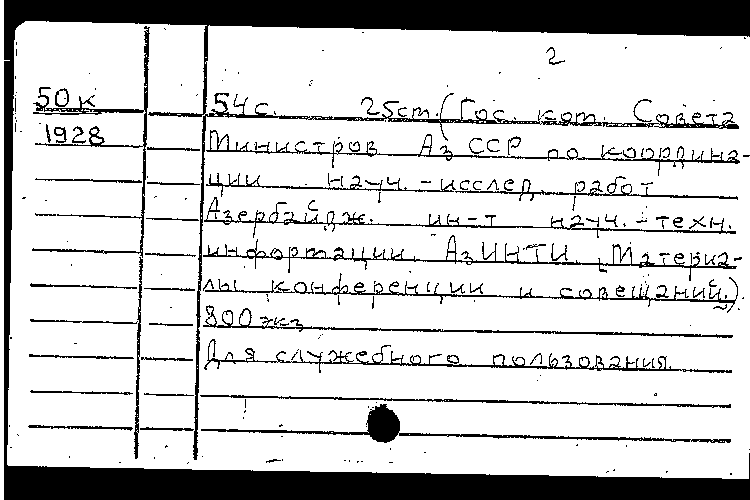 2
50к 54с. 25cm. (Гос. ком. Совета
1928 Министров Аз ССР по координа-
ции науч.-исслед. работ
Азербайдж. ин-т науч.-техн.
информации. АзИНТИ. Материа-
лы конференции и совещаний.)
800 экз
Для служебного пользования.